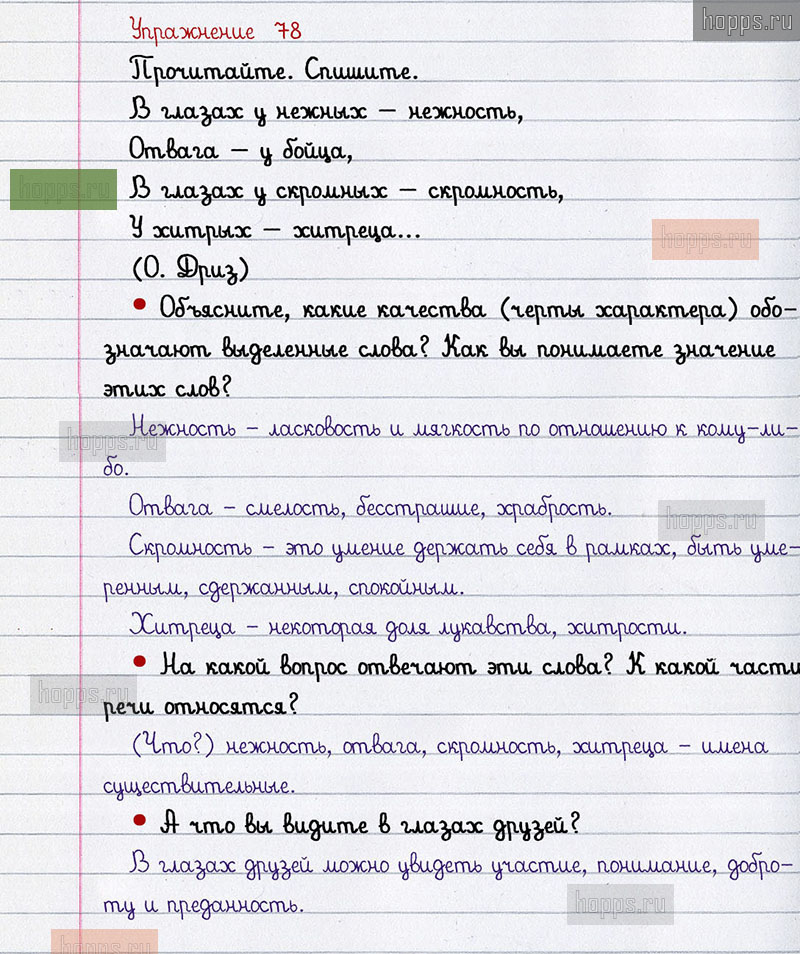 hopps.ru
Упражнение 78
Прочитайте. Спишите.
В глазах у нежных – нежность,
Отвага – у бойца,
hopps.ru
В глазах у скромных – скромность,
У хитрых – хитреца...
hopps.ru
(О. Дриз)
• Объясните, какие качества (черты характера) обо-
значают выделенные слова? Как вы понимаете значение
этих слов?
Нежность – ласковость и мягкость по отношению к кому-ли-
hopps.ru
бо.
Отвага – смелость, бесстрашие, храбрость.
hopps.ru
Скромность – это умение держать себя в рамках, быть уме-
ренным, сдержанным, спокойным.
Хитреца – некоторая доля лукавства, хитрости.
• На какой вопрос отвечают эти слова? К какой части
hopps.ru
речи относятся?
(Что?) нежность, отвага, скромность, хитреца – имена
существительные.
• А что вы видите в глазах друзей?
В глазах друзей можно увидеть участие, понимание, добро-
ту и преданность.
hopps.ru
hopps.ru